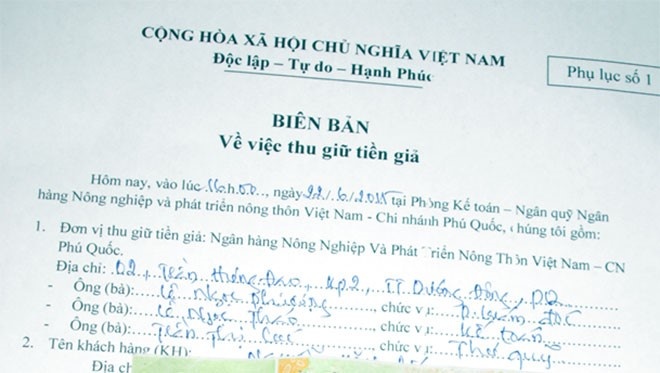 CỘNG HÒA XÃ HỘI CHỦ NGHĨA VIỆT NAM
Độc lập – Tự do – Hạnh Phúc
Phụ lục số 1
BIÊN BẢN
Về việc thu giữ tiền giả
Hôm nay, vào lúc 16.h.00.., ngày 22/.6./.2015 tại Phòng Kế toán – Ngân quỹ Ngân
hàng Nông nghiệp và phát triển nông thôn Việt Nam - Chi nhánh Phú Quốc, chúng tôi gồm:
1. Đơn vị thu giữ tiền giả: Ngân hàng Nông Nghiệp Và Phát Triển Nông Thôn Việt Nam – CN
Phú Quốc.
Địa chỉ: 02, Trần Hưng Đạo, Kp2, TT Dương Đông, PQ
- Ông (bà): Lê Ngọc Phượng, chức vụ: P. Giám đốc
- Ông (bà): Lê Ngọc Thảo, chức vụ: Kế toán
- Ông (bà): Trần Thị, chức vụ: Thủ quỹ
2. Tên khách hàng (KH):
Địa ch